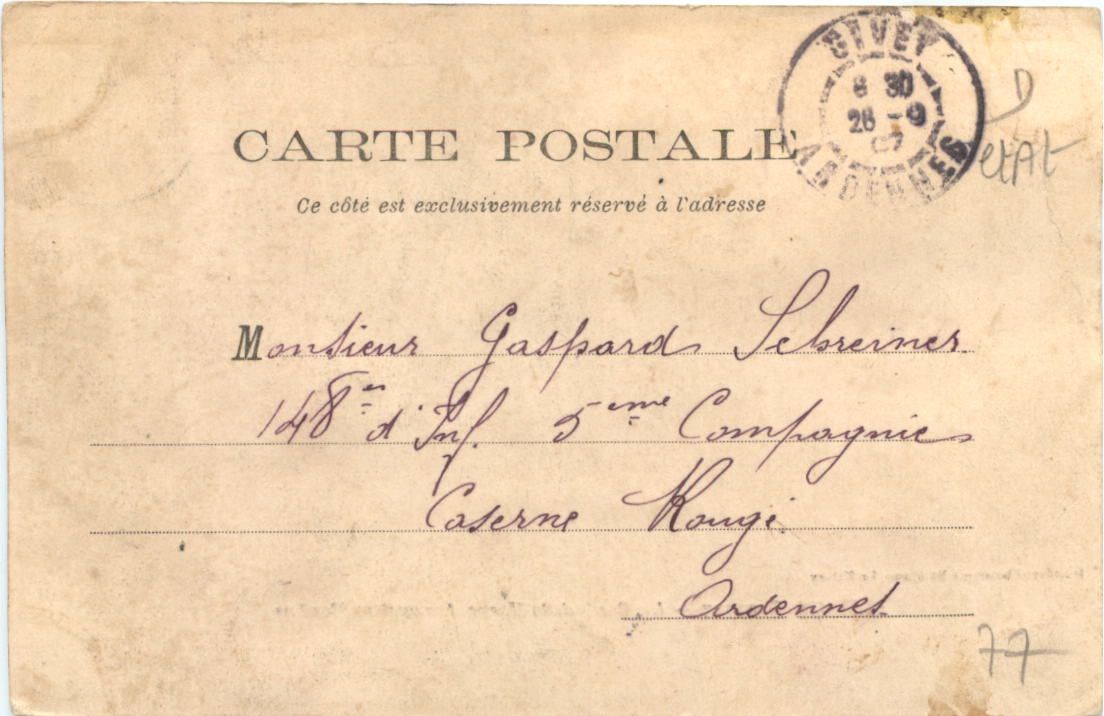 CARTE POSTALE
Ce côté est exclusivement réservé à l'adresse
GIVET
8 30
26 - 9
07
ARDENNES
D
etAt
Monsieur Gaspard Schreiner
148e d'Inf. 5eme Compagnie
Caserne Rouge
Ardennes
77